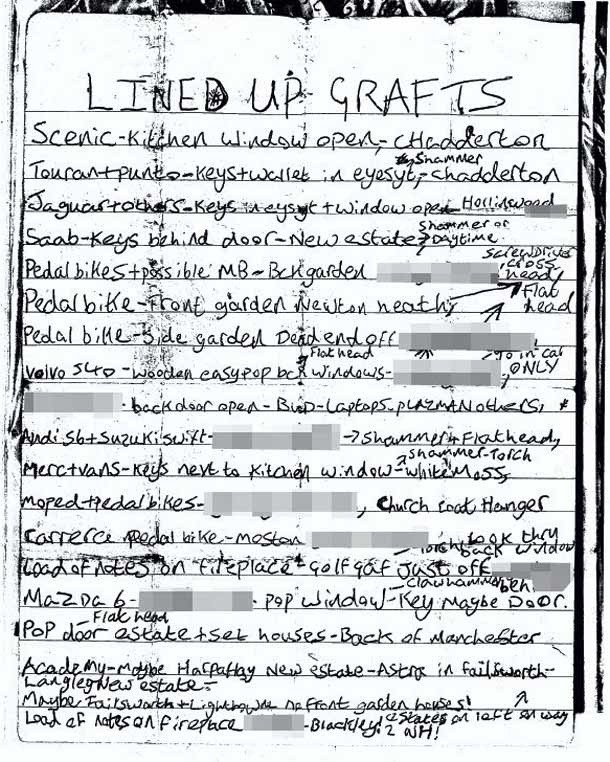 LINED UP GRAFTS
Scenic-Kitchen window open, - Chadderton
Shammer
Touran+punto-Keys+wallet in eyesyt, - chadderton
Jaguar+others-Keys in eysyt+window open Hollinswood
Shammer or
Saab-Keys behind door-New estate, Daytime.
Screwdriver
Pedal bikes+possible MB-Bck garden cross heady
Flat head
Pedal bike-front garden Newton heath,
Pedal bike-Side garden Dead end off
Flat head To in car
Volvo S40-wooden easy pop bck windows- ONLY
-back door open-BWD-Laptops.PLAZMAN others, *
Audi S6+Suzuki swift- → shammer+Flathead,
Shammer-Torch
Merc+vans-Keys next to kitchen window-White Moss,
moped+pedal bikes- , Church Coat Hanger
Carrerce pedal bike-moston look thru
-Torch back window
Load of notes on fireplace-Golf gaf just off
-Clawhammer beh.
Mazda 6- -pop window-Key Maybe Door.
-Flat head
Pop door estate+set houses-Back of Manchester
Academy-maybe Harpathay New estate-Astra in failsworth-
Langley New estate-
Maybe Failsworth+Lightbowne no front garden houses!
Load of notes on fireplace -Blackley! estates on left on way
2 NH!